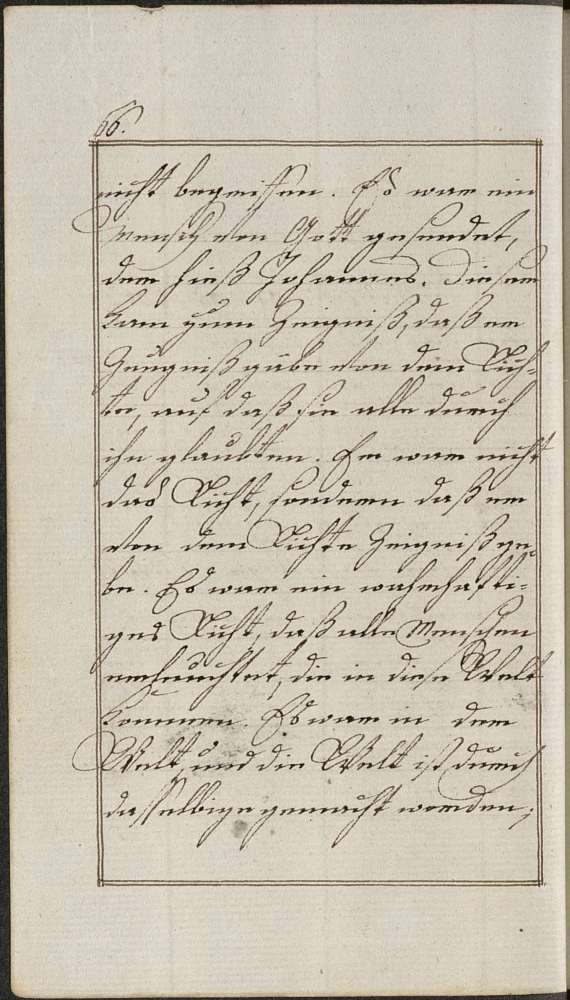 66.
nicht begriffen. Es war ein
Mensch von Gott gesendet,
der hieß Johannes. Dieser
kam zum Zeigniß, daß er
Zeugniß gäbe von dem Lich-
te, auf daß sie alle durch
ihn glaubten. Er war nicht
das Licht, sondern daß er
von dem Lichte Zeigniß ge-
be. Es war ein wahrhafti-
ges Licht, daß alle Menschen
erleuchtet, die in diese Welt
kommen. Es war in der
Welt, und die Welt ist durch
dasselbige gemacht worden;